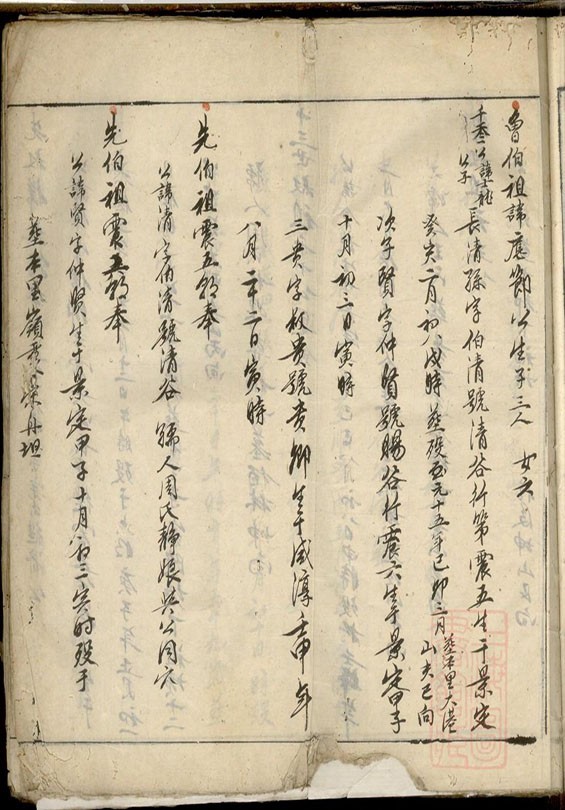 曾伯祖諱應節公生子三人 女六
千叁一公諱士
公子
長清孫字伯清號清谷行第震五生于景定
癸亥二月初八戌時葬殁至元十五年己卯三月
葬本里大港
山亥巳向
次子賢字仲賢號暘谷行震六生于景定甲子
十月初三日寅時
三貴字叔貴號貴卿生于咸淳壬申年
八月二十二日寅時
先伯祖震五郎奉
公諱清字伯清號清谷 孺人周氏靜娘與公同穴
先伯祖震五郎奉
公諱賢字仲賢生于景定甲子十月初三寅时殁于
葬本里嶺